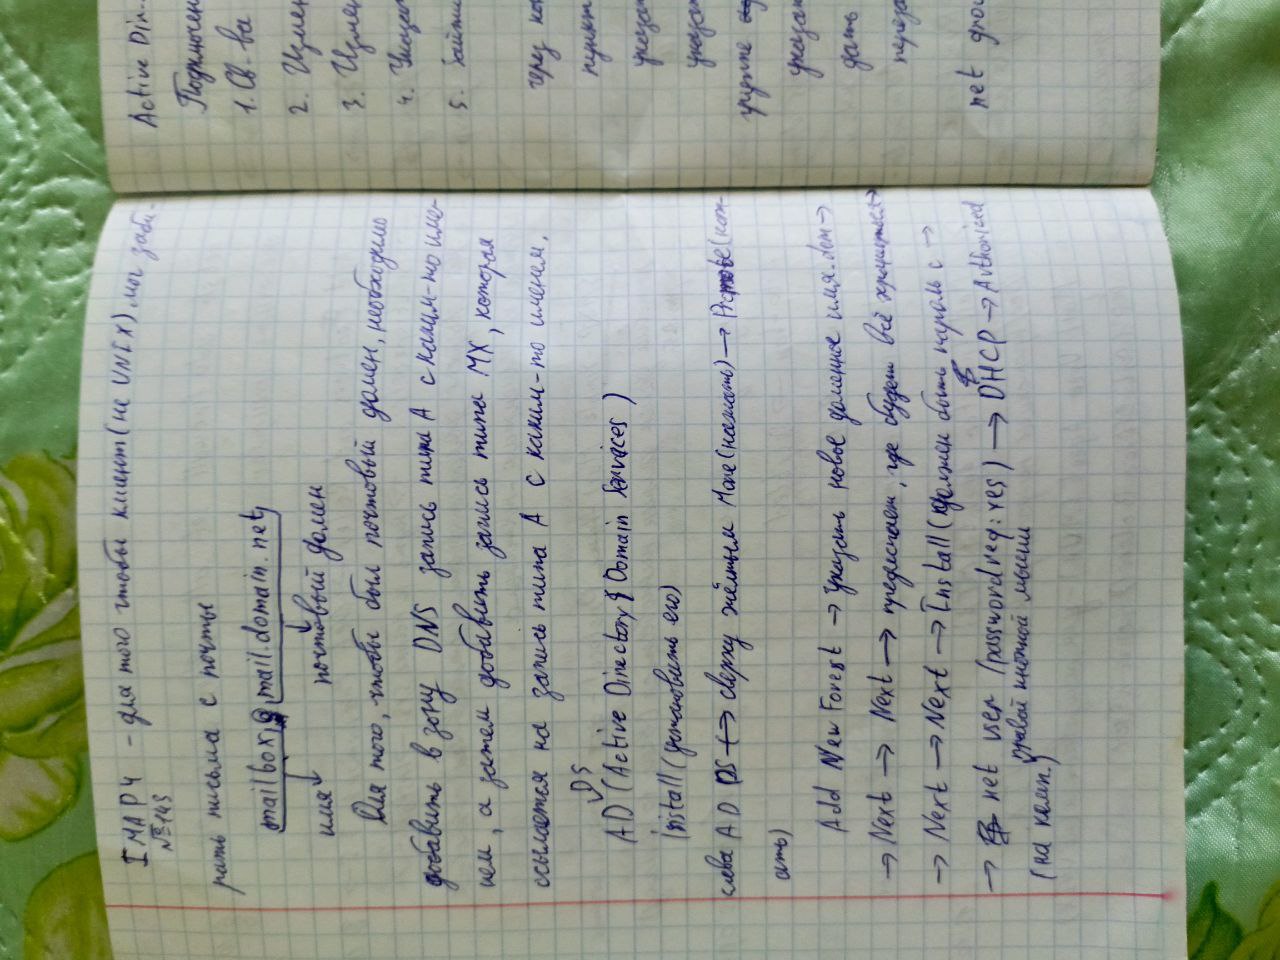 IMAP4 - для того чтобы клиент (не UNIX), мог заби-
№143
рать письма с почты
mailbox@mail.domain.net
имя почтовый домен
Для того, чтобы был почтовый домен, необходимо
добавить в зону DNS запись типа A с каким-то име-
нем, а затем добавить запись типа MX, которая
ссылается на запись типа A с каким-то именем.
DS
AD (Active Directory Domain Services)
Install (установить его)
слева AD DS → сверху жёлтым More (нажать) →
Add New Forest → указать новое доменное имя.dom →
→ Next → Next → предлагает, где будет всё храниться →
→ Next → Next → Install (должен быть пароль с →
→ net user (passwordreq:yes) → DHCP → Authorized
(на комп.) правой кнопкой мыши
Active Dir
Подключен
1. Св-ва
2. Измен
3. Измен
4.
5. Зайти
через ко
пункт
указат
указат
группе
указат
дать
переза
net grou